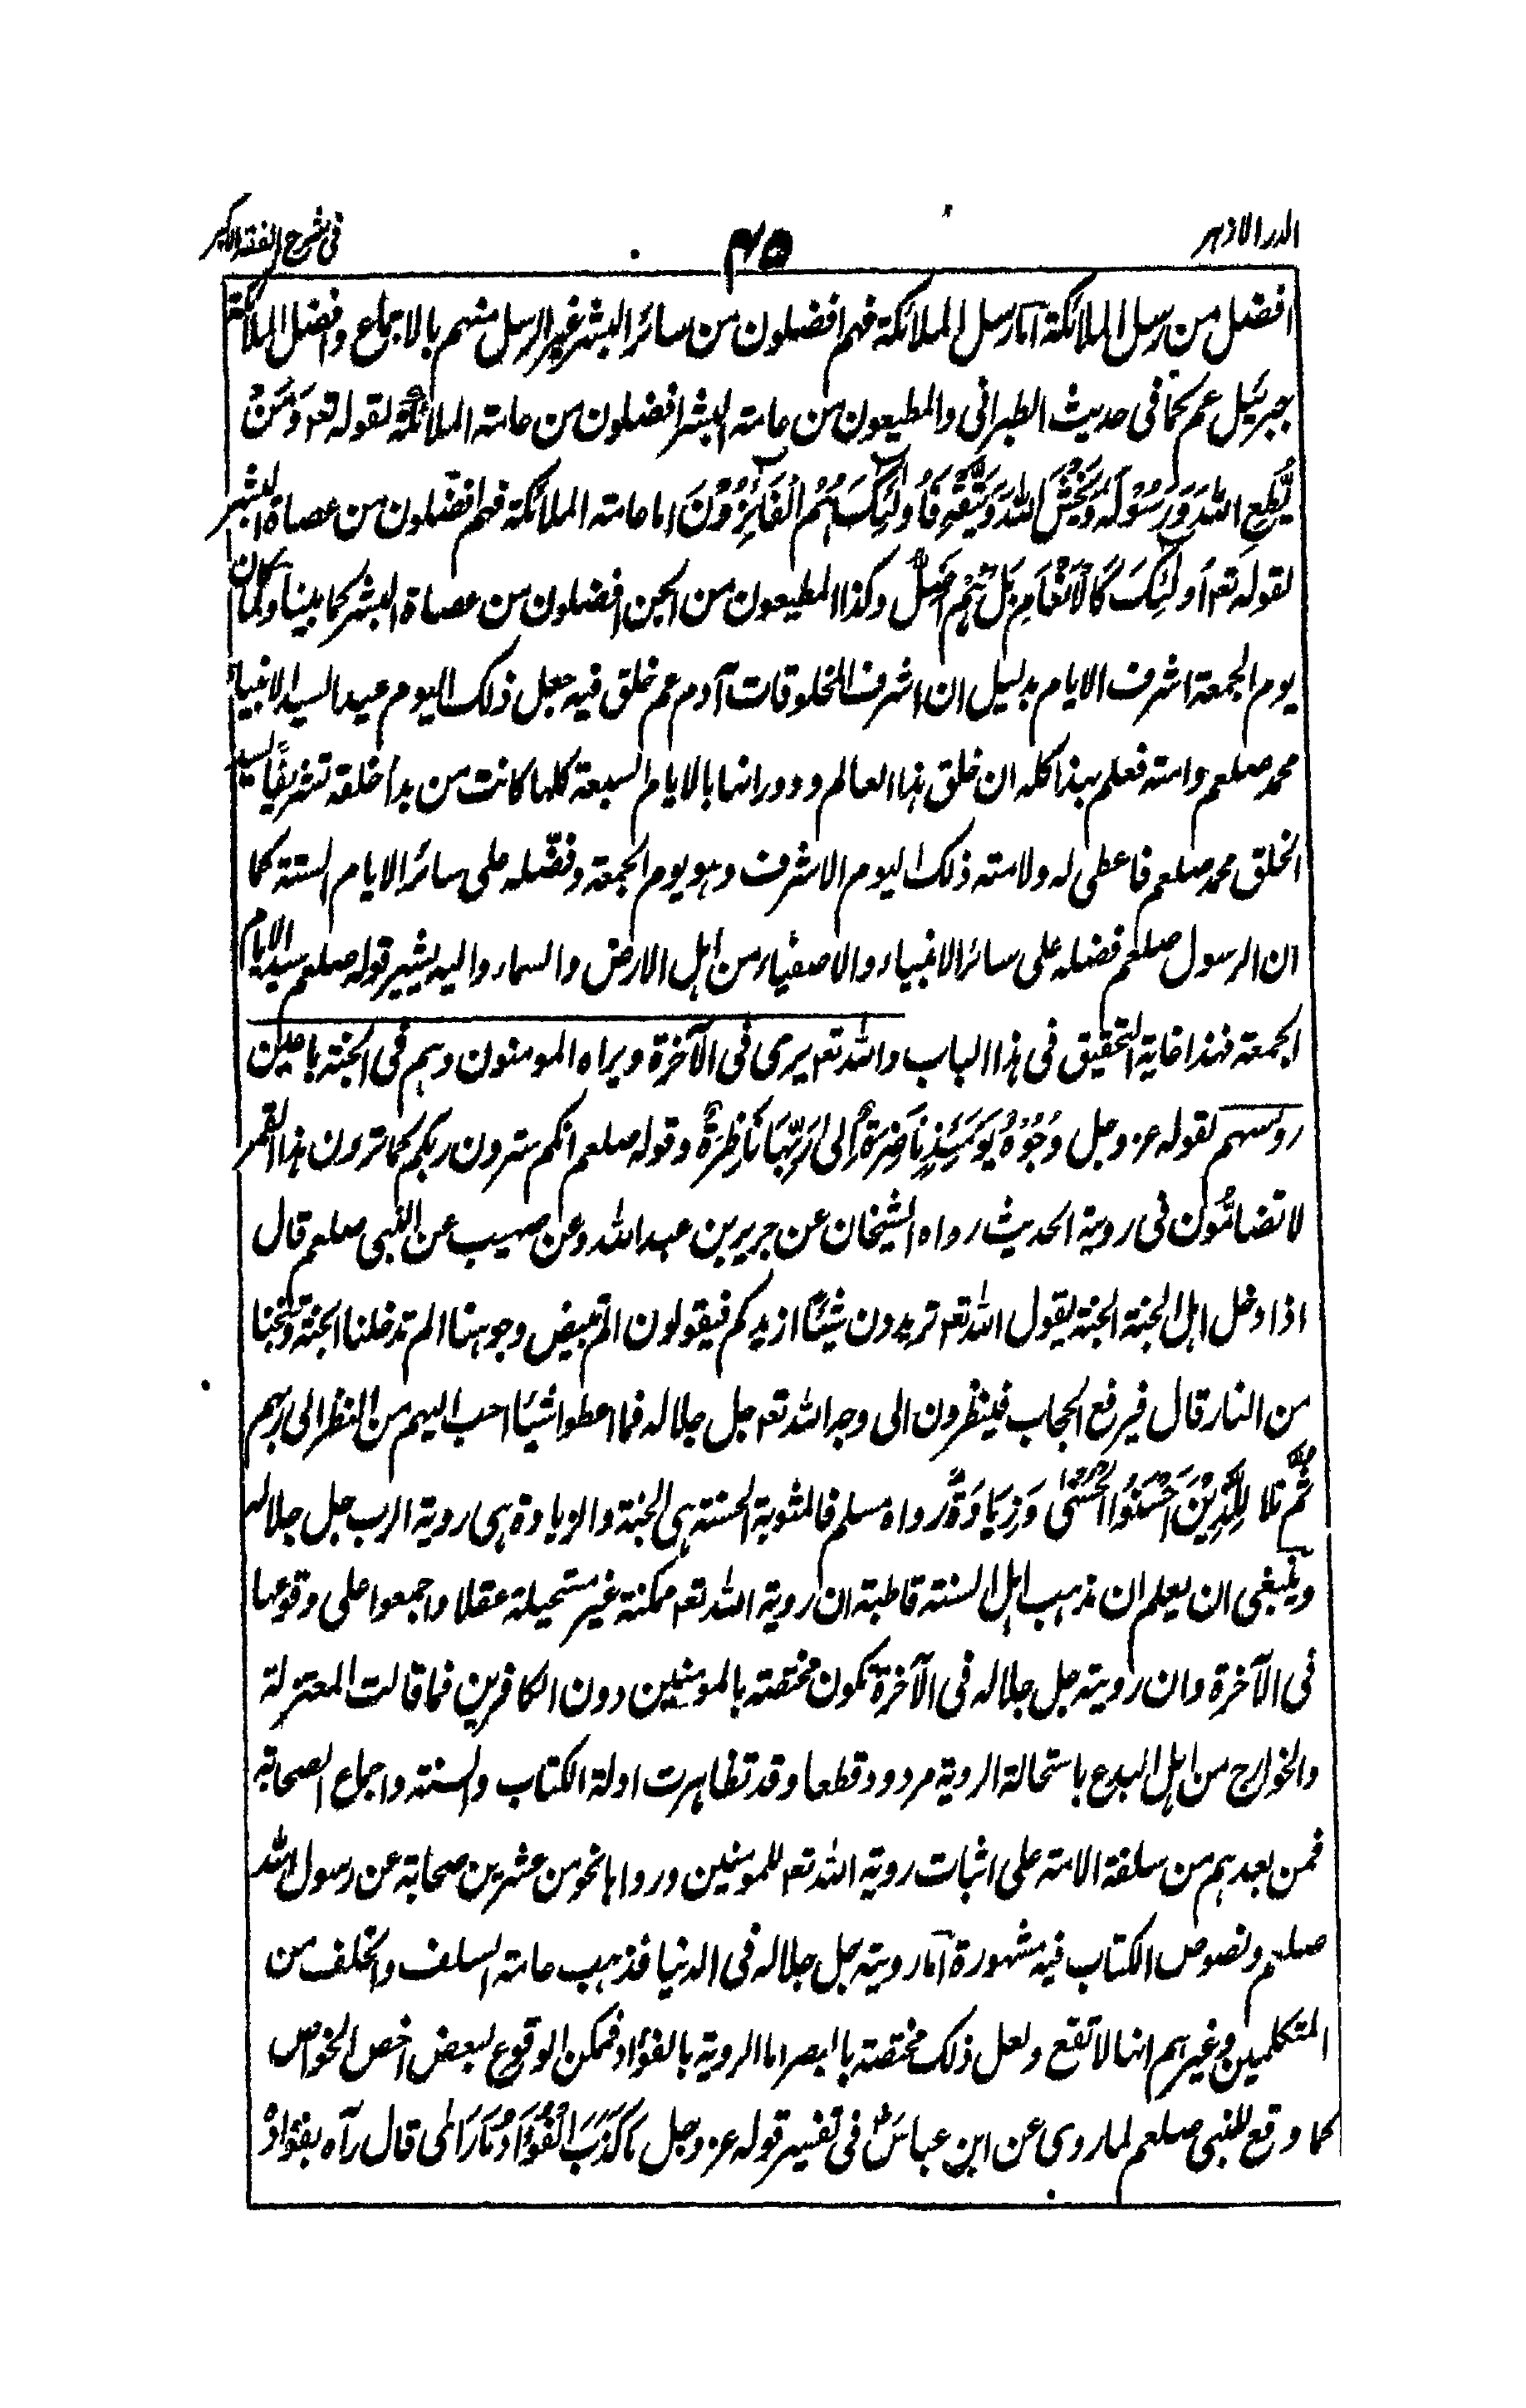 الدر الازهر
٤٥
فى شرح الفقه الاكبر
افضل من رسل الملائكة اما رسل الملائكة فهم افضلون من سائر البشر غير الرسل منهم بالاجماع وافضل الملائكة
جبرئيل عم كما فى حديث الطبرانى والمطيعون من عامته البشر افضلون من عامته الملائكة لقوله تعم وَمَنْ
يُّطِعِ اللهَ وَرَسُوْلَهٗ وَيَخْشَ اللهَ وَيَتَّقْهِ فَاُولٰئِكَ هُمُ الْفَائِزُوْنَ اما عامته الملائكة فهم افضلون من عصاة البشر
لقوله تعم اُولٰئِكَ كَالْاَنْعَامِ بَلْ هُمْ اَضَلُّ وكذا المطيعون من الجن افضلون من عصاة البشر كما بينا وكان
يوم الجمعة اشرف الايام بدليل ان اشرف المخلوقات آدم عم خلق فيه جعل ذلك اليوم عيدا لسيد الانبياء
محمد صلعم وامته فعلم بهذا كله ان خلق هذا العالم ودورانها بالايام السبعة كلها كانت من بدأ خلقه تشريفًا لسيد
الخلق محمد صلعم فاعطى له ولامته ذلك اليوم الاشرف وهو يوم الجمعة وفضّله على سائر الايام الستة كما
ان الرسول صلعم فضله على سائر الانبياء والاصفياء من اهل الارض والسماء واليه يشير قوله صلعم سيد الايام
الجمعة فهذا غاية التحقيق فى هذا الباب والله تعم يرى فى الآخرة ويراه المومنون وهم فى الجنة باعين
روسهم لقوله عز وجل وُجُوْهٌ يَوْمَئِذٍ نَاضِرَةٌ اِلٰى رَبِّهَا نَاظِرَةٌ وقوله صلعم انكم سترون ربكم كما ترون هذا القمر
لا تضامُّون فى روية الحديث رواه الشيخان عن جرير بن عبد الله وعن صهيب عن النبى صلعم قال
اذا دخل اهل الجنة الجنة يقول الله تعم تريدون شيئًا ازيدكم فيقولون الم تبيض وجوهنا الم تدخلنا الجنة وتنجنا
من النار قال فيرفع الحجاب فينظرون الى وجه الله تعم جل جلاله فما اعطوا شيئا احب اليهم من النظر الى ربهم
ثُمَّ تلا لِلَّذِيْنَ اَحْسَنُوا الْحُسْنٰى وَزِيَادَةٌ رواه مسلم فالمثوبة الحسنة هى الجنة والزيادة هى روية الرب جل جلاله
وينبغى ان يعلم ان مذهب اهل السنة قاطبة ان روية الله تعم ممكنة غير مستحيلة عقلا واجمعوا على وقوعها
فى الآخرة وان رويته جل جلاله فى الآخرة تكون مختصته بالمومنين دون الكافرين فما قالت المعتزلة
والخوارج من اهل البدع باستحالة الروية مردود قطعا وقد تظاهرت ادلة الكتاب والسنته واجماع الصحابة
فمن بعدهم من سلفة الامته على اثبات روية الله تعم للمومنين ورواها نحو من عشرين صحابة عن رسول الله
صلعم ونصوص الكتاب فيه مشهورة اما رويته جل جلاله فى الدنيا فذهب عامته السلف والخلف من
المتكلمين وغيرهم انها لا تقع ولعل ذلك مختصته بالبصر اما الروية بالفؤاد فممكن الوقوع لبعض اخص الخواص
كما وقع للنبى صلعم لما روى عن ابن عباسؓ فى تفسير قوله عز وجل مَا كَذَبَ الْفُؤَادُ مَا رَاٰى قال رآه بفؤاده